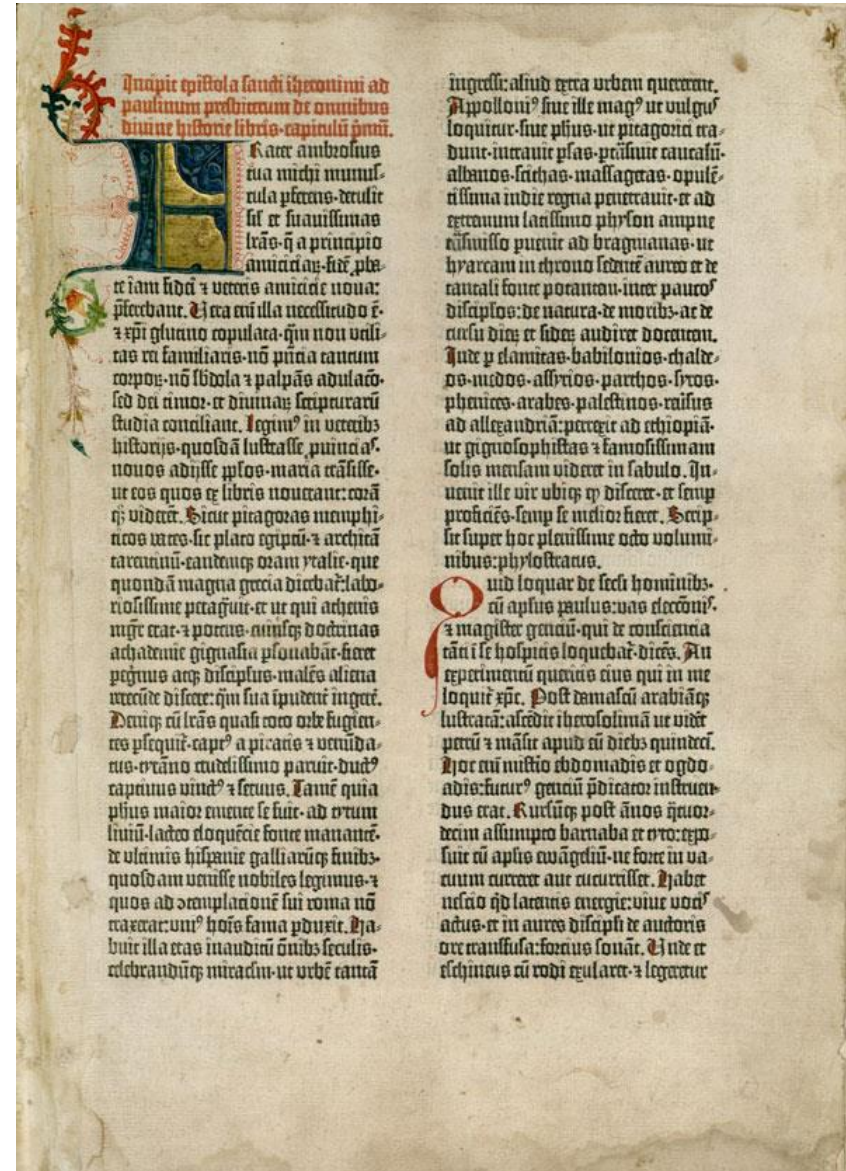 Incipit epistola sancti iheronimi ad
paulinum presbiterum de omnibus
divine historie libris·capitulū p̄mū.
Frater ambrosius
tua michi munus⸗
cula pferens·detulit
sil̄ et suavissimas
lrās·q̄ a principio
amiciciaꝝ·fidē pba⸗
te iam fidei ⁊ veteris amicicie nova:
p̄ferebant. Vera eni̅ illa necessitudo ē·
⁊ xp̄i glutino copulata·q̄m non utili⸗
tas rei familiaris·nō pn̄tia tantum
corpoꝝ·nō sb̄dola ⁊ palpās adulac̄o·
sed dei timor·et divinaꝝ scripturarū
studia conciliant. Legimꝰ in veteribꝫ
historijs·quosdā lustrasse ꝓvinciaſ·
novos adijsse pplos·maria trāsisse·
ut eos quos ex libris noverant: corā
qꝫ viderēt. Sicut pitagoras memphi⸗
ticos vates·sic plato egiptū·⁊ architā
tarentinū·eandemqꝫ oram ytalie·que
quondā magna grecia dicebat̄: labo⸗
riosissime peragr̄vit·et ut qui athenis
mgr̄ erat·⁊ potens·cuiusqꝫ doctrinas
achademie gignasia psonabāt·fieret
pegrinus atqꝫ discipulus·malēs aliena
verecūde discere: q̄m sua ipudent̄ ingere̅.
Deniqꝫ cū lrās quasi toto orbe fugien⸗
tes psequit̄·captꝰ a piratis ⁊ venūda⸗
tus·tyrāno crudelissimo paruit·ductꝰ
captivus vinctꝰ ⁊ servus. Tamē quia
phus maior emente se fuit·ad tytum
liviū·lacteo eloquēcie fonte manantē·
de ultimis hispanie galliarūqꝫ finibꝫ·
quosdam venisse nobiles legimus·⁊
quos ad ↄtemplationē sui roma nō
traxerat: uniꝰ hoīs fama pduxit. Ha⸗
buit illa etas inauditū ōnibꝫ seculis·
celebrandūqꝫ miraclm̄·ut urbē tantā
ingressi: aliud extra urbem quererent.
Appolloniꝰ sive ille magꝰ ut vulguſ
loquitur·sive phus·ut pitagorici tra⸗
dunt·intravit psas·ptrāsivit caucasū·
albanos·scithas·massagetas·opulē⸗
tissima indie regna penetravit·et ad
extremum latissimo physon ampne
trāsmisso pvenit ad bragmanas·ut
hyarcam in throno sedentē aureo et de
tantali fonte potantem·inter paucoſ
discipulos: de natura·de moribꝫ·ac de
cursu dieꝝ et sideꝝ audiret docentem.
Inde p elamitas·babilonios·chalde⸗
os·medos·assyrios·parthos·syros·
phenices·arabes·palestinos·reūsus
ad allexandriā: perrexit ad ethiopiā·
ut gignosophistas ⁊ famosissimam
solis mensam videret in sabulo. In⸗
venit ille vir ubiqꝫ qꝫ disceret·et semp
proficiēs·semp se melior fieret. Scrip⸗
sit super hoc plenissime octo volumi⸗
nibus: phylostratus.
Quid loquar de secli hominibꝫ·
cū apostolus paulus: vas elecc̄oniſ·
⁊ magister gentiū·qui de conscientia
tāti i se hospitis loquebat̄·dicēs. An
experimentū queritis eius qui in me
loquit̄ xp̄c. Post damascū arabiāqꝫ
lustratā: ascēdit iherosolimā ut vidēt
petrū ⁊ māsit apud eū diebꝫ quindecī.
Hoc eni̅ mistio ebdomadis et ogdo⸗
adis: futurꝰ gentiū p̄dicator instruen⸗
dus erat. Rursūqꝫ post ānos q̄tuor⸗
decim assumpto barnaba et tyto: expo⸗
suit cū aplis ewāgeliū·ne forte in va⸗
cuum curreret aut cucurrisset. Habet
nescio q̄d latentis energie: vive vociſ
actus·et in aures discipli de auctoris
ore transfusa: fortius sonāt. Unde et
eschineus cū rodi exularet·⁊ legeretur